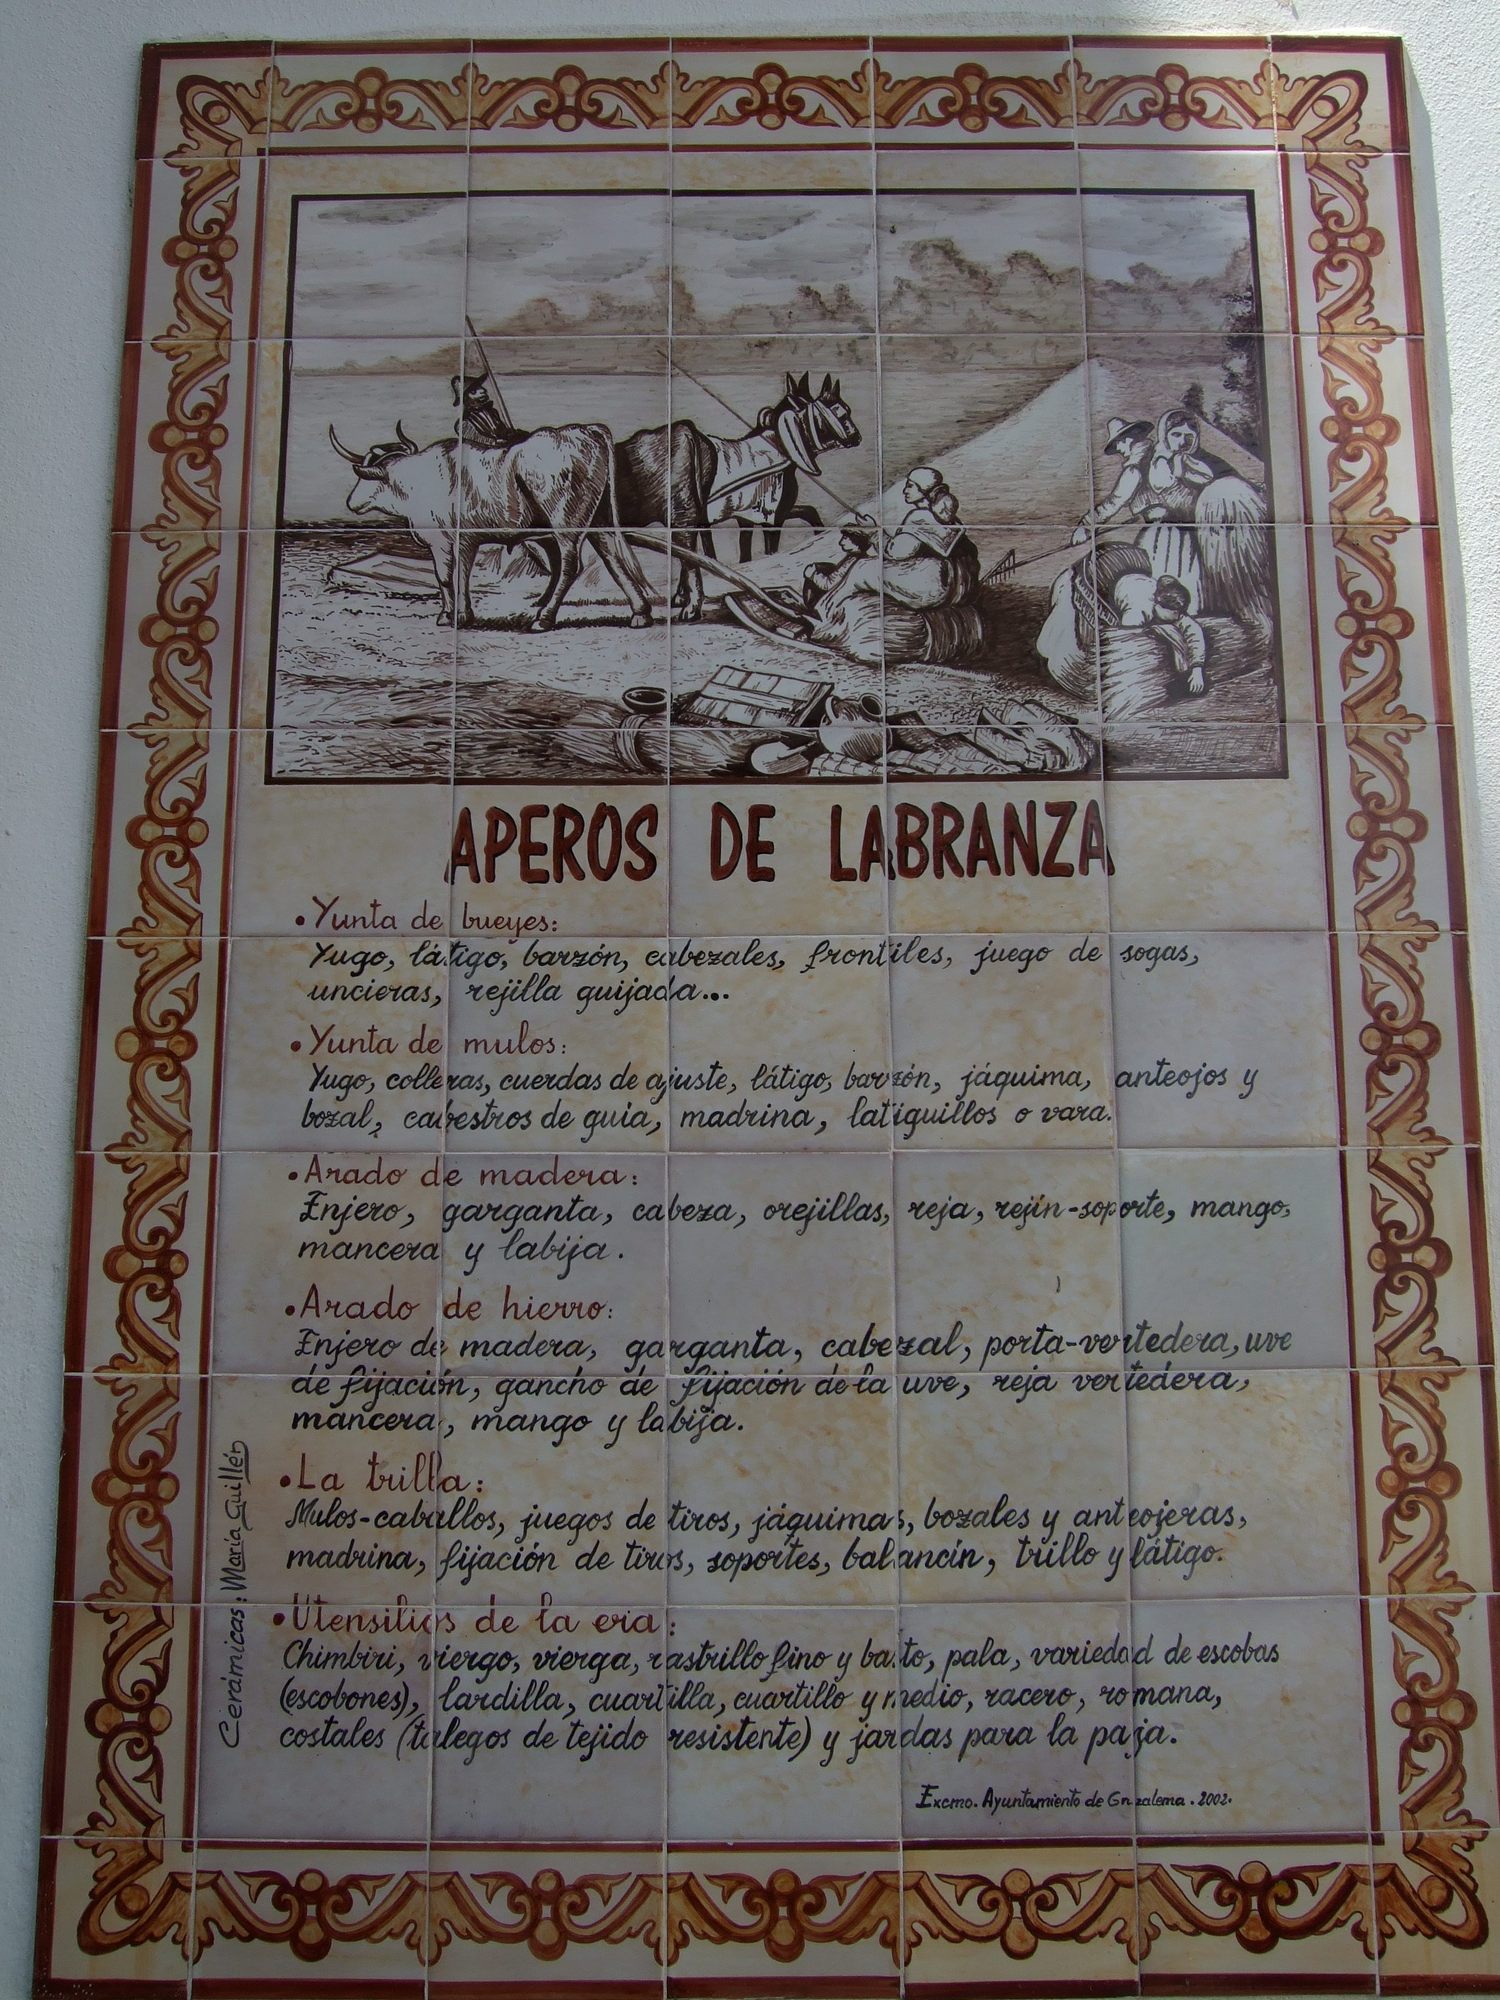 APEROS DE LABRANZA
•Yunta de bueyes:
Yugo, látigo, barzón, cabezales, frontiles, juego de sogas,
uncieras, rejilla guijada...
•Yunta de mulos:
Yugo, colleras, cuerdas de ajuste, látigo, barzón, jáquima, anteojos y
bozal, cabestros de guia, madrina, latiguillos o vara.
•Arado de madera:
Enjero, garganta, cabeza, orejillas, reja, rejín-soporte, mango,
mancera y labija.
•Arado de hierro:
Enjero de madera, garganta, cabezal, porta-vertedera, uve
de fijación, gancho de fijación de la uve, reja vertedera,
mancera, mango y labija.
•La trilla:
Mulos-caballos, juegos de tiros, jáquimas, bozales y anteojeras,
madrina, fijación de tiros, soportes, balancín, trillo y látigo.
•Utensilios de la era:
Chimbiri, viergo, vierga, rastrillo fino y basto, pala, variedad de escobas
(escobones), lardilla, cuartilla, cuartillo y medio, racero, romana,
costales (talegos de tejido resistente) y jardas para la paja.
Excmo. Ayuntamiento de Grazalema. 2002.
Cerámicas: María Guillén